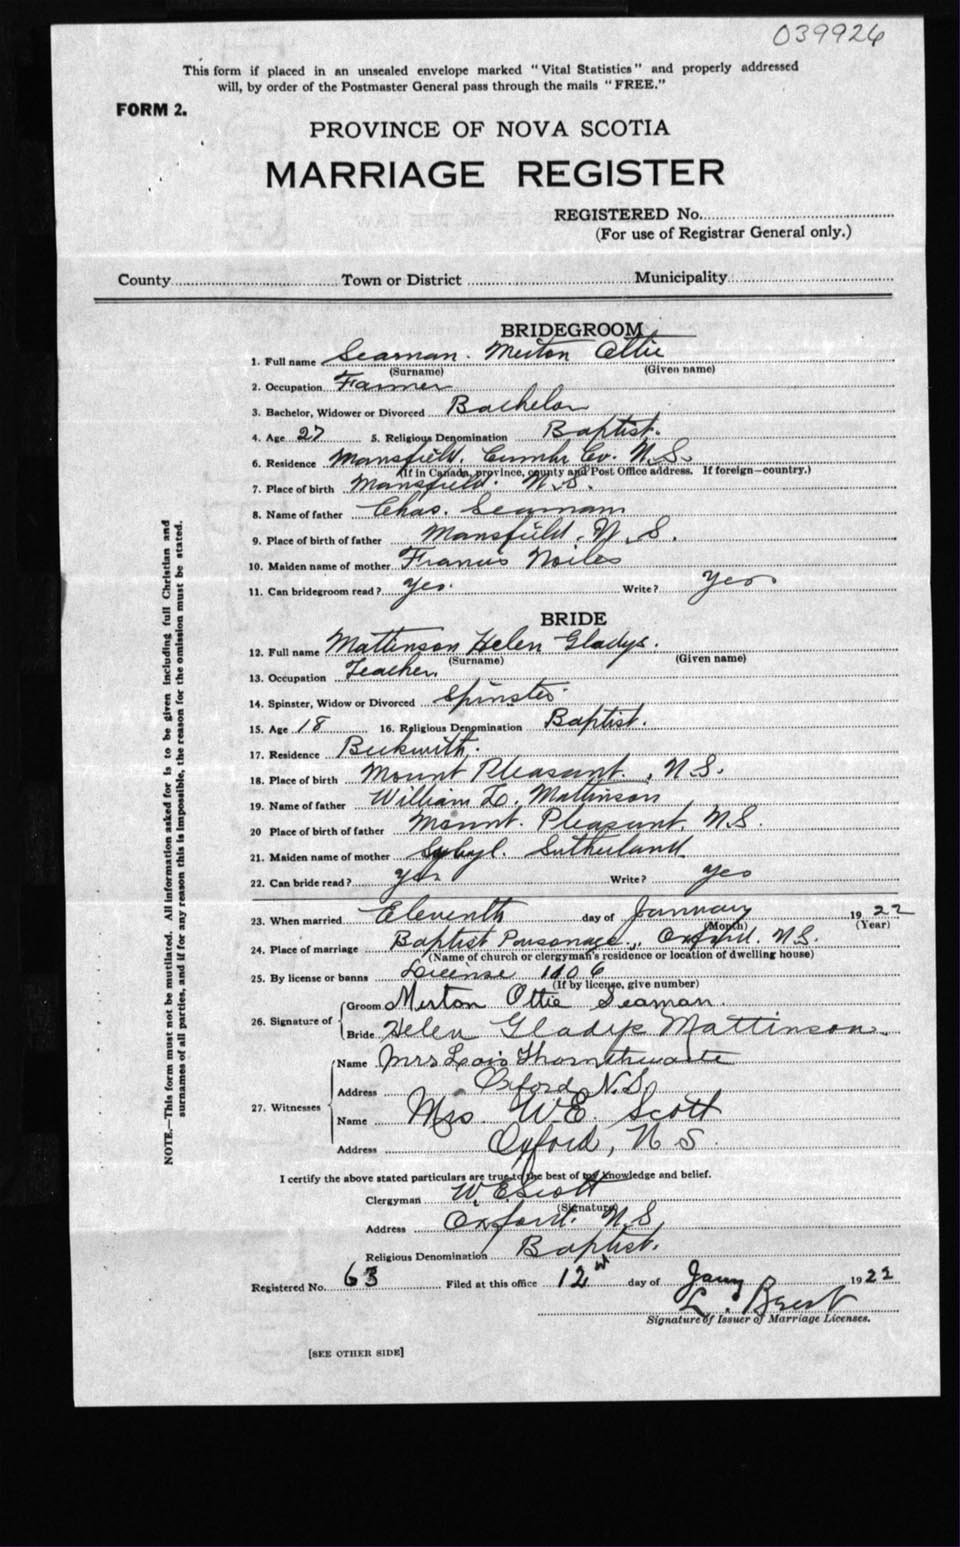 039926
This form if placed in an unsealed envelope marked "Vital Statistics" and properly addressed
will, by order of the Postmaster General pass through the mails "FREE."
FORM 2.
PROVINCE OF NOVA SCOTIA
MARRIAGE REGISTER
REGISTERED No.
(For use of Registrar General only.)
County Town or District Municipality
BRIDEGROOM
1. Full name Seaman. Merton Ottie
(Surname) (Given name)
2. Occupation Farmer
3. Bachelor, Widower or Divorced Bachelor
4. Age 27 5. Religious Denomination Baptist.
6. Residence Mansfield. Cumb. Co. N.S.
(If in Canada, province, county and Post Office address. If foreign—country.)
7. Place of birth Mansfield. N.S.
8. Name of father Chas. Seaman
9. Place of birth of father Mansfield, N.S.
10. Maiden name of mother Francis Noiles
11. Can bridegroom read? Yes. Write? Yes
BRIDE
12. Full name Mattinson Helen Gladys.
(Surname) (Given name)
13. Occupation Teacher
14. Spinster, Widow or Divorced Spinster
15. Age 18 16. Religious Denomination Baptist.
17. Residence Beckwith.
18. Place of birth Mount Pleasant, N.S.
19. Name of father William L. Mattinson
20 Place of birth of father Mount. Pleasant, N.S.
21. Maiden name of mother Sybyl. Sutherland
22. Can bride read? yes Write? yes
23. When married Eleventh day of January 1922
(Month) (Year)
24. Place of marriage Baptist Parsonage, Oxford. N.S.
(Name of church or clergyman's residence or location of dwelling house)
25. By license or banns License 1106
(If by license, give number)
26. Signature of Groom Merton Ottie Seaman.
Bride Helen Gladys Mattinson.
27. Witnesses Name Mrs Lois Thornthwaite
Address Oxford N.S.
Name Mrs. W.E. Scott
Address Oxford, N.S.
I certify the above stated particulars are true to the best of my knowledge and belief.
Clergyman W. E. Scott
(Signature)
Address Oxford. N.S.
Religious Denomination Baptist.
Registered No. 63 Filed at this office 12 day of Jany 1922
L. Brent
Signature of Issuer of Marriage Licenses.
[SEE OTHER SIDE]
NOTE.—This form must not be mutilated. All information asked for is to be given including full Christian and
surnames of all parties, and if for any reason this is impossible, the reason for the omission must be stated.